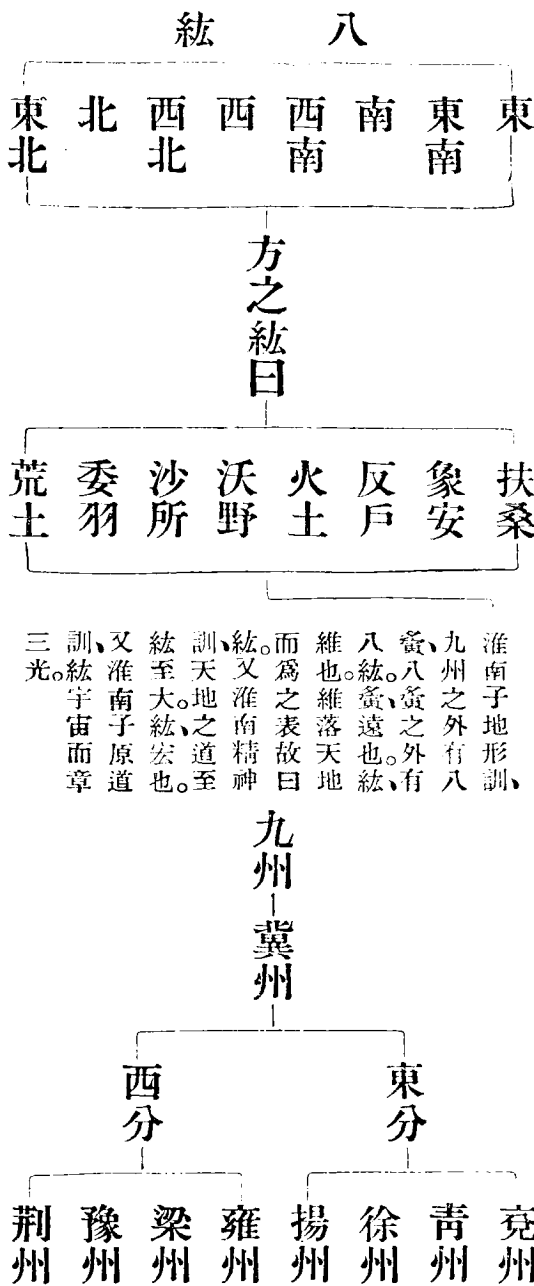 八紘
東
東南
南
西南
西
西北
北
東北
方之紘曰
扶桑
象安
反戶
火土
沃野
沙所
委羽
荒土
淮南子地形訓、
九州之外有八
夤、八夤之外有
八紘。夤、遠也。紘、
維也。維落天地
而爲之表故曰
紘。又淮南精神
訓、天地之道至
紘至大。紘、宏也。
又淮南子原道
訓、紘宇宙而章
三光。
九州
冀州
東分
西分
兗州
靑州
徐州
揚州
雍州
梁州
豫州
荆州